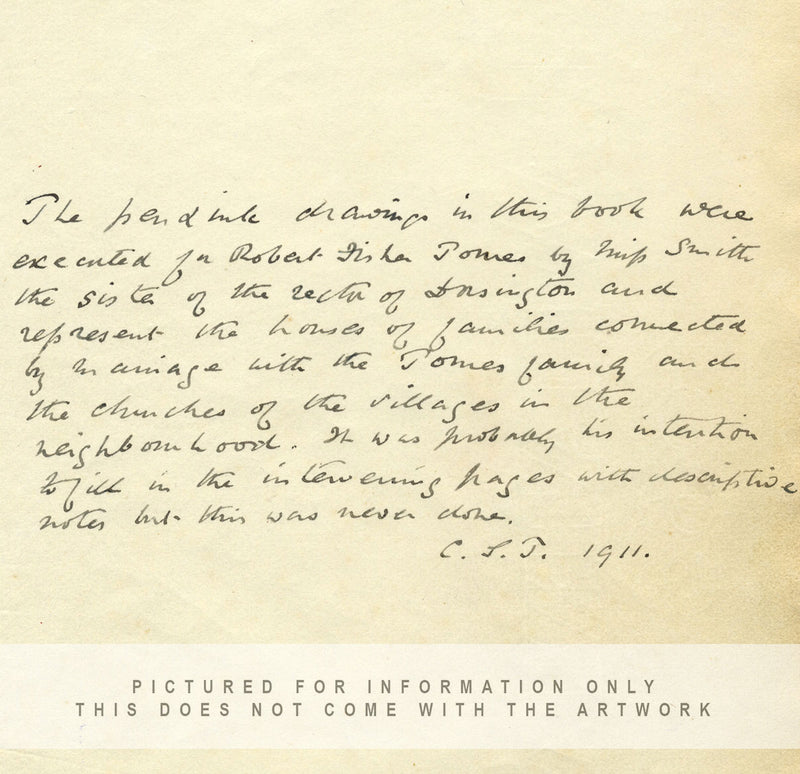 The pen & ink drawings in this book were
executed for Robert Fisher Tomes by Miss Smith
the sister of the rector of Dorsington and
represent the houses of families connected
by marriage with the Tomes family and
the churches of the villages in the
neighbourhood. It was probably his intention
to fill in the intervening pages with descriptive
notes but this was never done.
C. S. T. 1911.
PICTURED FOR INFORMATION ONLY
THIS DOES NOT COME WITH THE ARTWORK